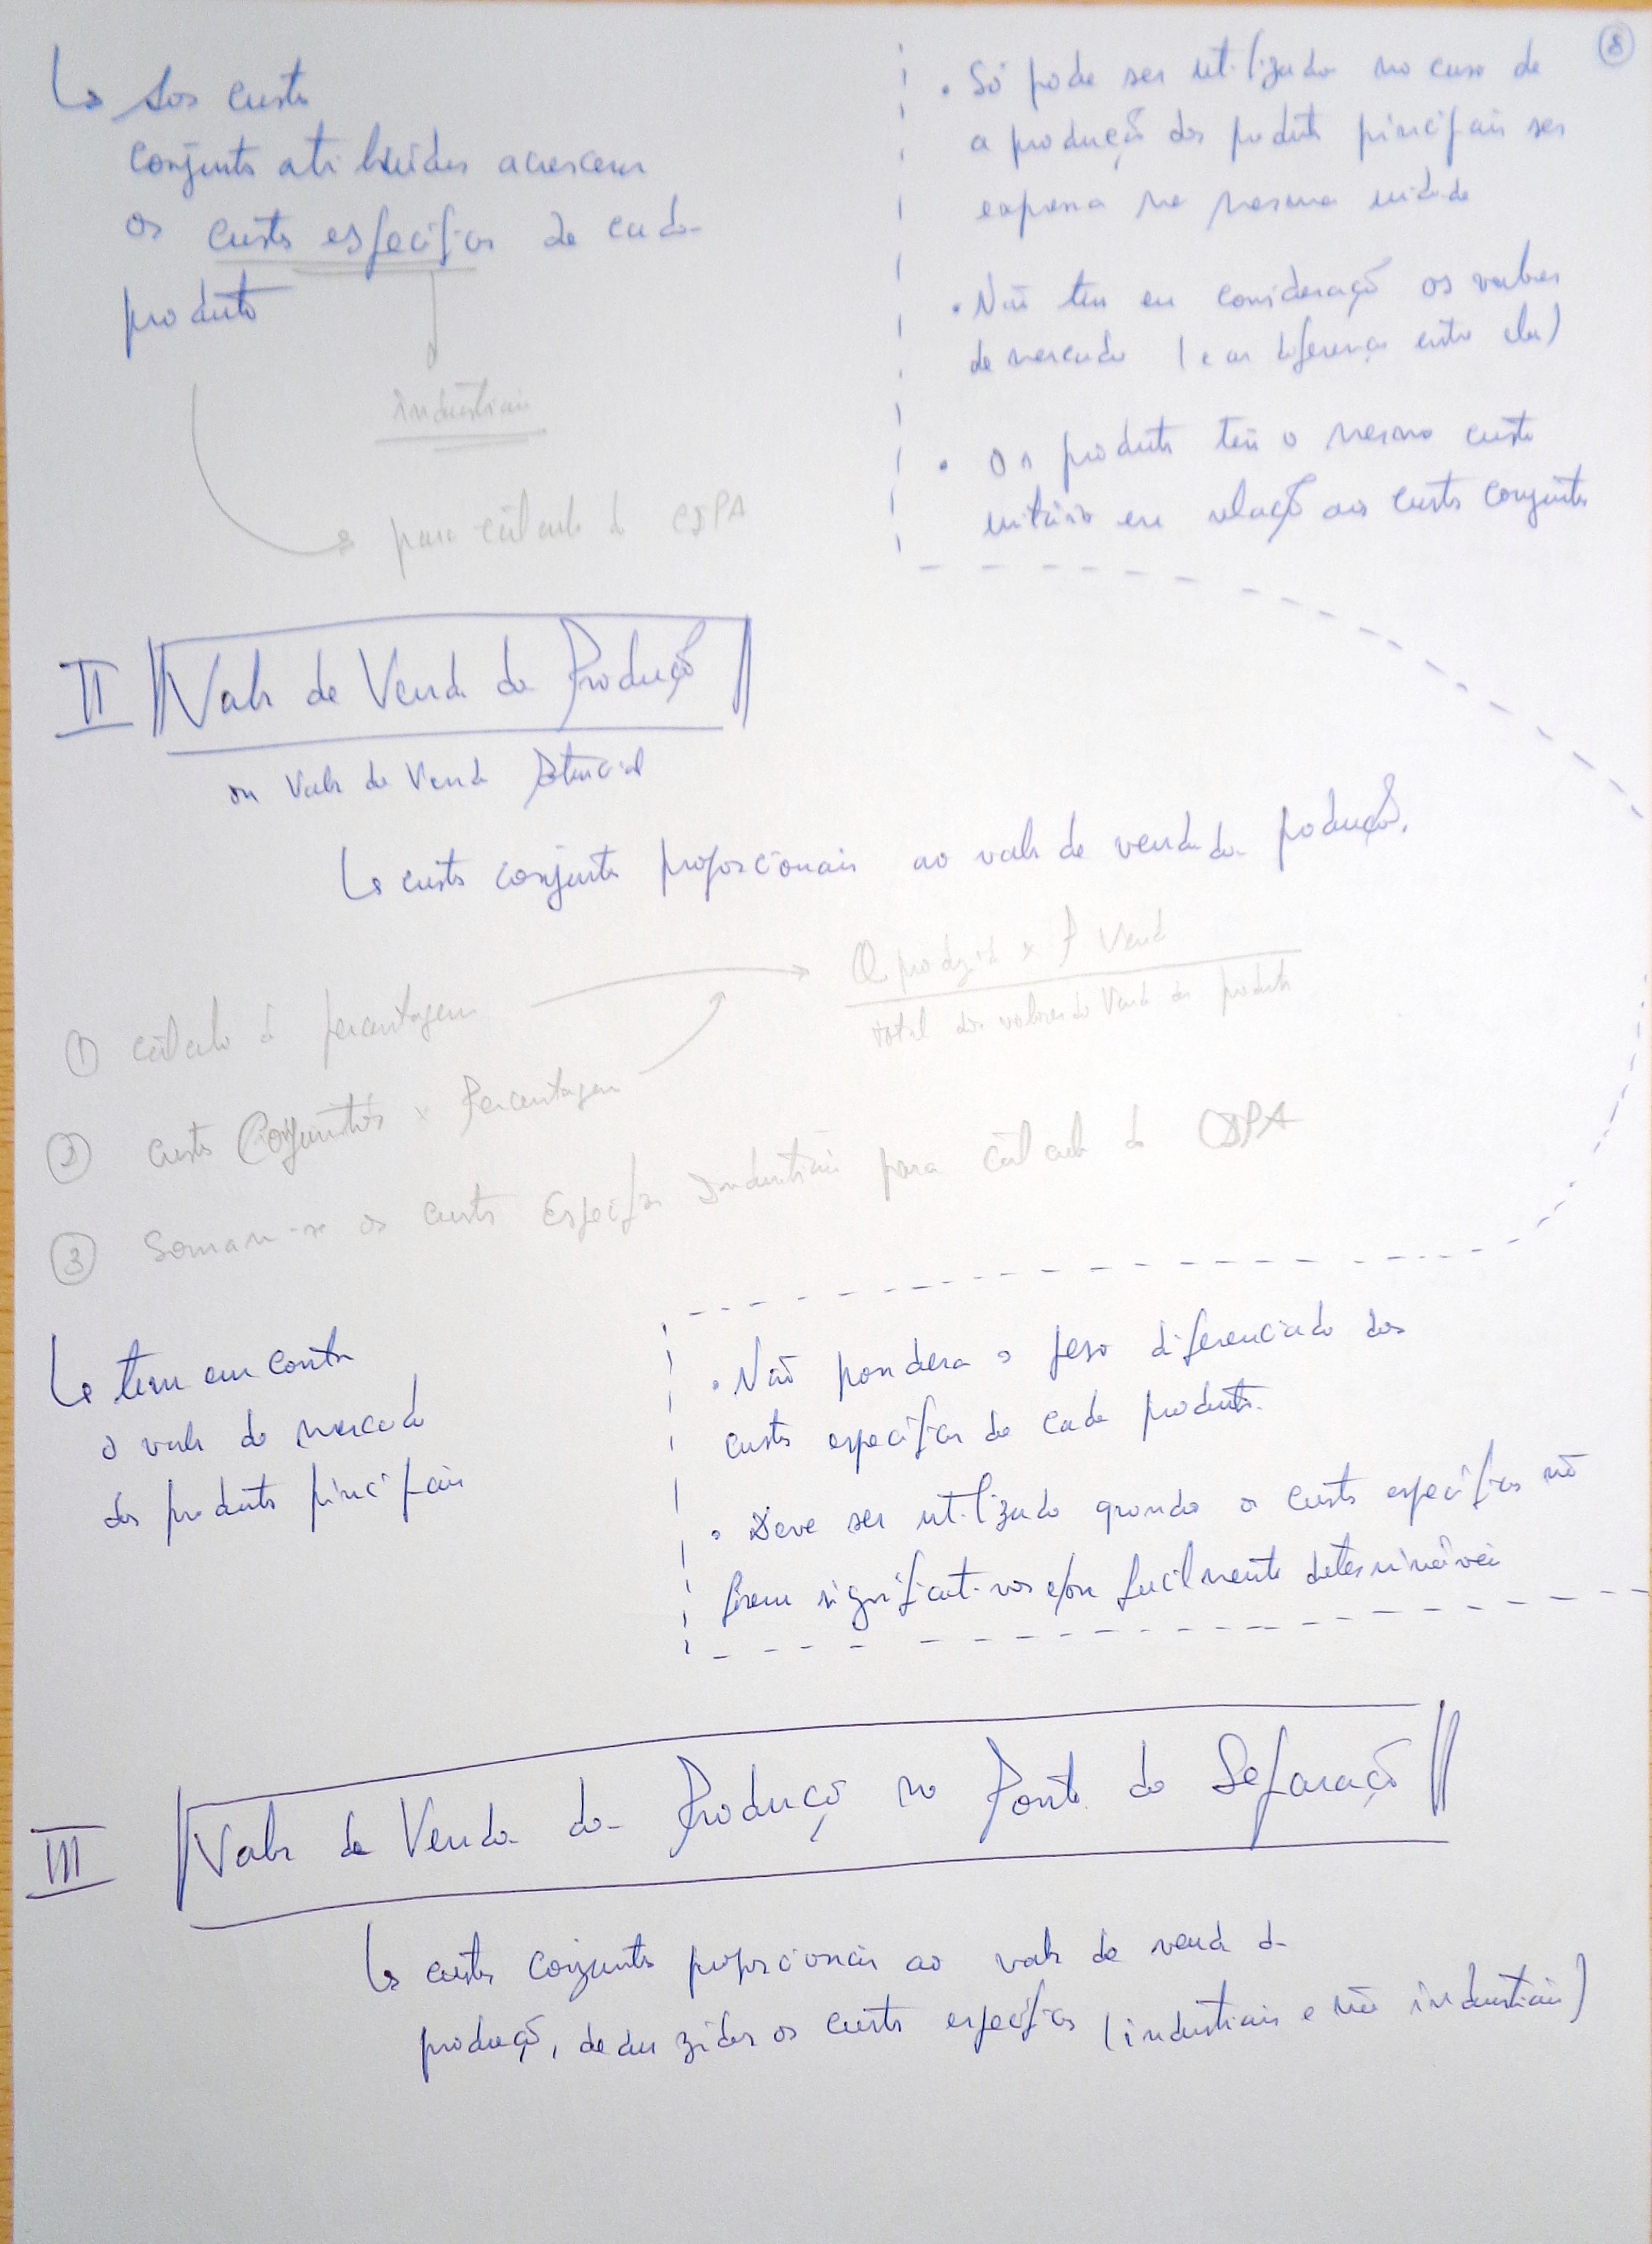 8
↳ Aos custos
conjuntos atribuídos acrescem
os custos específicos de cada
produto
Industriais
para cálculo do CIPA
• Só pode ser utilizado no caso de
a produção dos produtos principais ser
expressa na mesma unidade
• Não tem em consideração os valores
de mercado (e as diferenças entre eles)
• Os produtos têm o mesmo custo
unitário em relação aos custos conjuntos
II Valor de Venda da Produção
ou Valor de Venda Potencial
↳ custos conjuntos proporcionais ao valor de venda da produção.
① cálculo da percentagem → Q produzida x P Venda
total dos valores de Venda dos produtos
② custos Conjuntos x Percentagem
③ Somam-se os custos Específicos Industriais para cálculo do CIPA
↳ tem em conta
o valor de mercado
dos produtos principais
• Não pondera o peso diferenciado dos
custos específicos de cada produto.
• Deve ser utilizado quando os custos específicos não
forem significativos e/ou facilmente determináveis
III Valor de Venda da Produção no Ponto de Separação
↳ custos conjuntos proporcionais ao valor de venda da
produção, deduzidos os custos específicos (industriais e não industriais)